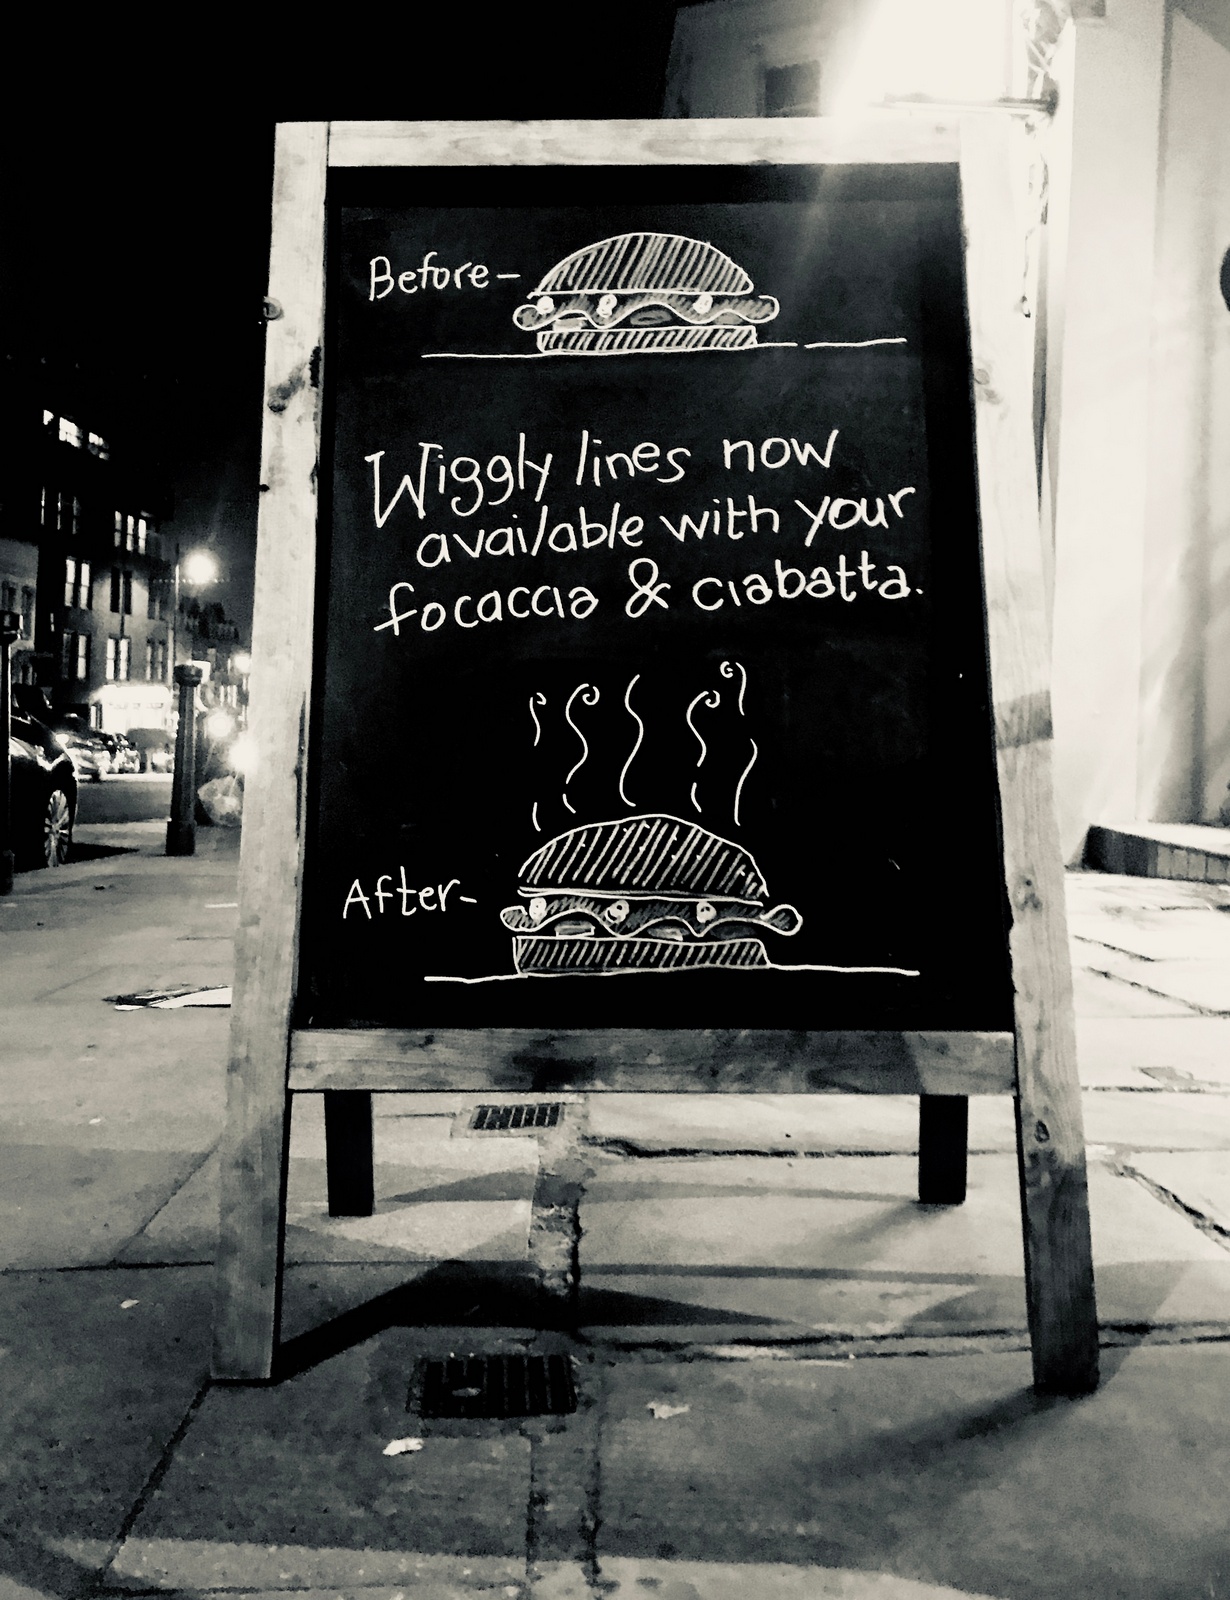 Before-
Wiggly lines now
available with your
focaccia & ciabatta.
After-